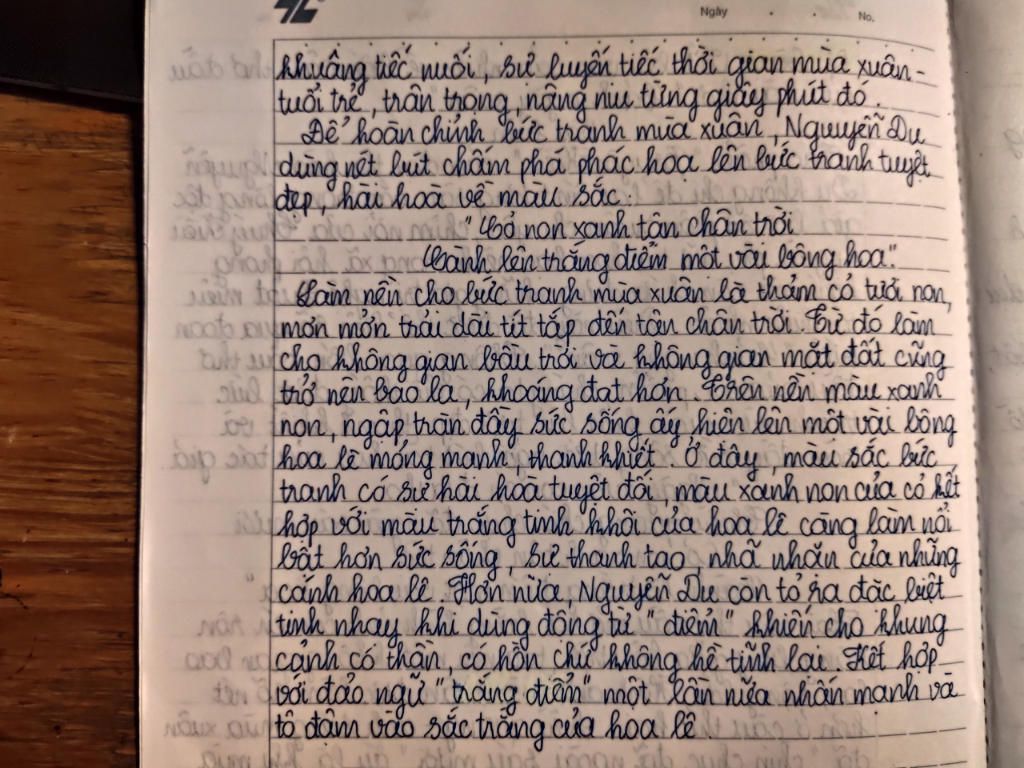 Ngày . . No.
khuâng tiếc nuối, sự luyến tiếc thời gian mùa xuân -
tuổi trẻ, trân trọng, nâng niu từng giây phút đó.
Để hoàn chỉnh bức tranh mùa xuân, Nguyễn Du
dùng nét bút chấm phá phác họa lên bức tranh tuyệt
đẹp, hài hoà về màu sắc:
"Cỏ non xanh tận chân trời
Cành lên trắng điểm một vài bông hoa."
Làm nền cho bức tranh mùa xuân là thảm cỏ tươi non,
mơn mởn trải dài tít tắp đến tận chân trời. Từ đó làm
cho không gian bầu trời và không gian mặt đất cũng
trở nên bao la, khoáng đạt hơn. Trên nền màu xanh
non, ngập tràn đầy sức sống ấy hiện lên một vài bông
hoa lê mỏng manh, thanh khiết. Ở đây, màu sắc bức
tranh có sự hài hoà tuyệt đối, màu xanh non của cỏ kết
hợp với màu trắng tinh khôi của hoa lê càng làm nổi
bật hơn sức sống, sự thanh tao, nhã nhặn của những
cánh hoa lê. Hơn nữa, Nguyễn Du còn tỏ ra đặc biệt
tinh nhạy khi dùng động từ "điểm" khiến cho khung
cảnh có thần, có hồn chứ không hề tĩnh lại. Kết hợp
với đảo ngữ "trắng điểm" một lần nữa nhấn mạnh và
tô đậm vào sắc trắng của hoa lê